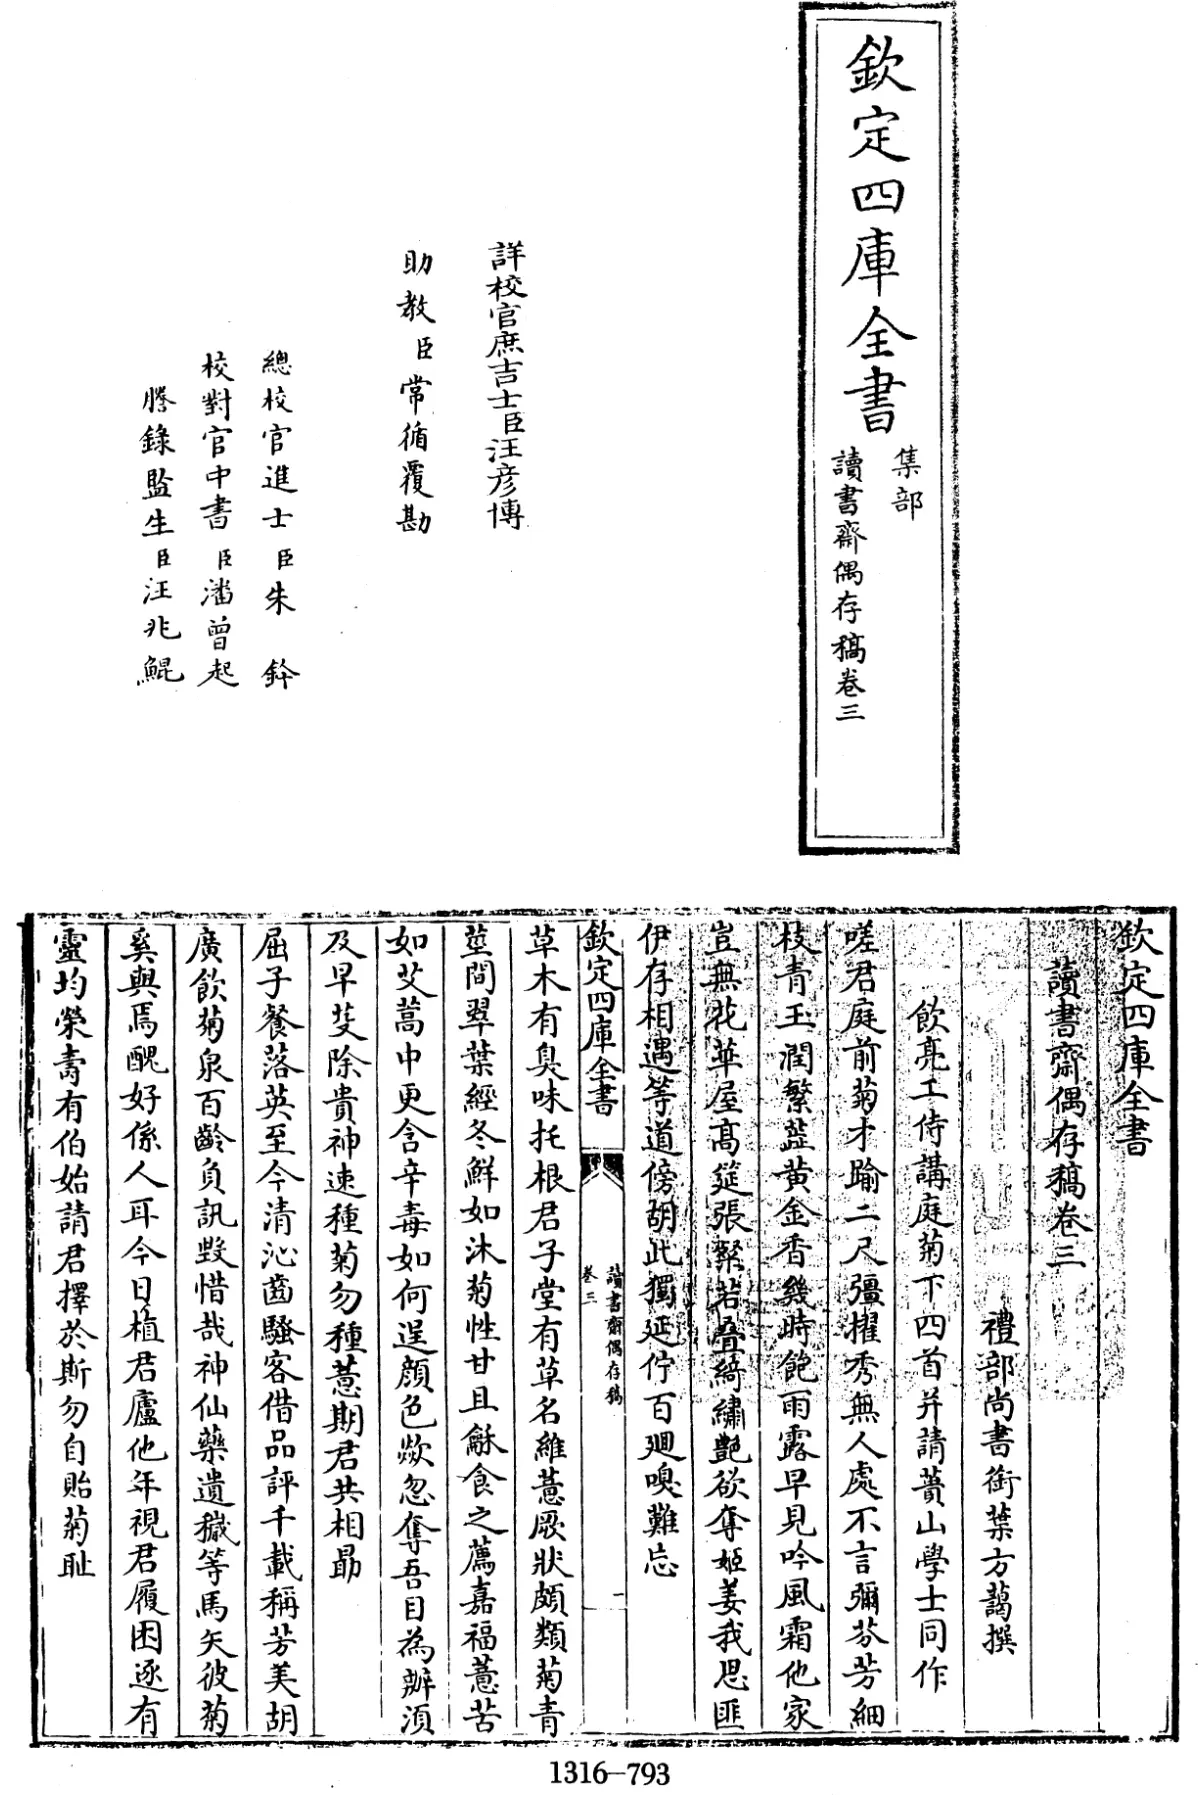 欽定四庫全書
集部
讀書齋偶存稿卷三
詳校官庶吉士臣汪彥博
助教臣常循覆勘
總校官進士臣朱鈐
校對官中書臣潘曾起
謄錄監生臣汪兆鯤
欽定四庫全書
讀書齋偶存稿卷三
禮部尚書銜葉方藹撰
飲亮工侍講庭菊下四首并請蕢山學士同作
嗟君庭前菊才踰二尺彊擢秀無人處不言彌芬芳細
枝青玉潤繁蘂黃金香幾時飽雨露早見吟風霜他家
豈無花華屋高筵張粲若疊綺繡艷欲奪姬姜我思匪
伊存相遇等道傍胡此獨延佇百迴嗅難忘
欽定四庫全書
讀書齋偶存稿
卷三
一
草木有臭味托根君子堂有草名維薏厥狀頗類菊青
莖間翠葉經冬鮮如沐菊性甘且龢食之薦嘉福薏苦
如艾蒿中更含辛毒如何逞顏色欻忽奪吾目為辦湏
及早芟除貴神速種菊勿種薏期君共相勗
屈子餐落英至今清沁齒騷客借品評千載稱芳美胡
廣飲菊泉百齡負訊毀惜哉神仙藥遺穢等馬矢彼菊
奚與焉醜好係人耳今日植君廬他年視君履困逐有
靈均榮壽有伯始請君擇於斯勿自貽菊恥
1316-793